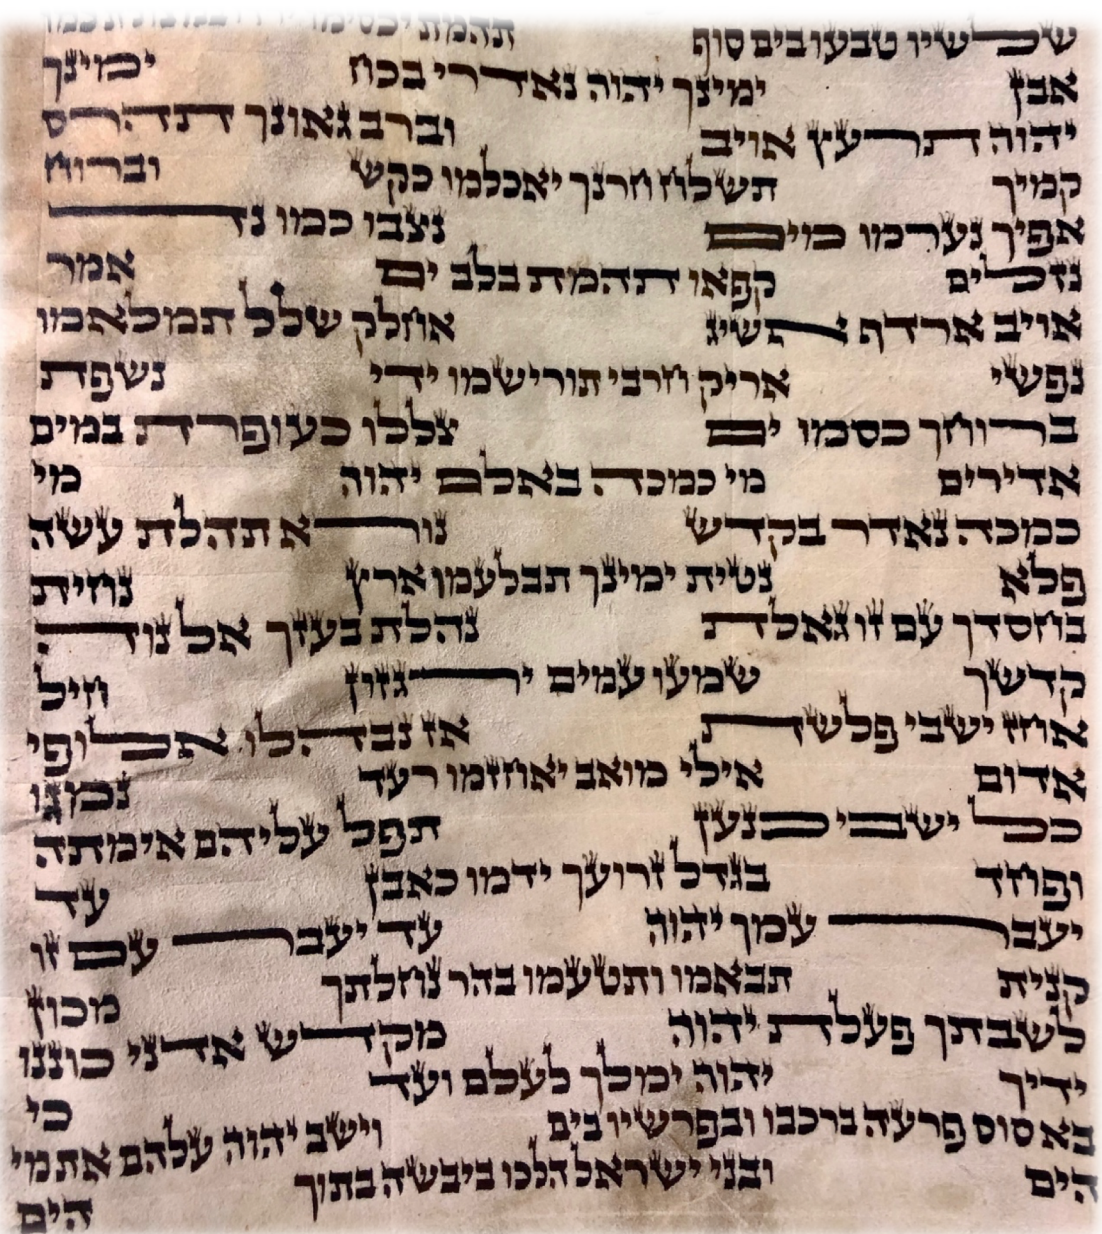 שלשיו טבעו בים סוף תהמת יכסימו
אבן ימינך יהוה נאדרי בכח ימינך
יהוה תרעץ אויב וברב גאונך תהרס
קמיך תשלח חרנך יאכלמו כקש וברוח
אפיך נערמו מים נצבו כמו נד
נזלים קפאו תהמת בלב ים אמר
אויב ארדף אשיג אחלק שלל תמלאמו
נפשי אריק חרבי תורישמו ידי נשפת
ברוחך כסמו ים צללו כעופרת במים
אדירים מי כמכה באלם יהוה מי
כמכה נאדר בקדש נורא תהלת עשה
פלא נטית ימינך תבלעמו ארץ נחית
בחסדך עם זו גאלת נהלת בעזך אל נוה
קדשך שמעו עמים ירגזון חיל
אחז ישבי פלשת אז נבהלו אלופי
אדום אילי מואב יאחזמו רעד נמגו
כל ישבי כנען תפל עליהם אימתה
ופחד בגדל זרועך ידמו כאבן עד
יעבר עמך יהוה עד יעבר עם זו
קנית תבאמו ותטעמו בהר נחלתך מכון
לשבתך פעלת יהוה מקדש אדני כוננו
ידיך יהוה ימלך לעלם ועד כי
בא סוס פרעה ברכבו ובפרשיו בים וישב יהוה עלהם את מי
הים ובני ישראל הלכו ביבשה בתוך הים